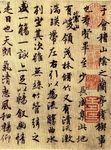 于會稽山陰之蘭亭
也羣賢畢至少長咸集此地
有崇山峻領茂林脩竹又有清流激
湍暎帶左右引以為流觴曲水
列坐其次雖無絲竹管弦之
盛一觴一詠亦足以暢叙幽情
是日也天朗氣清惠風和暢仰